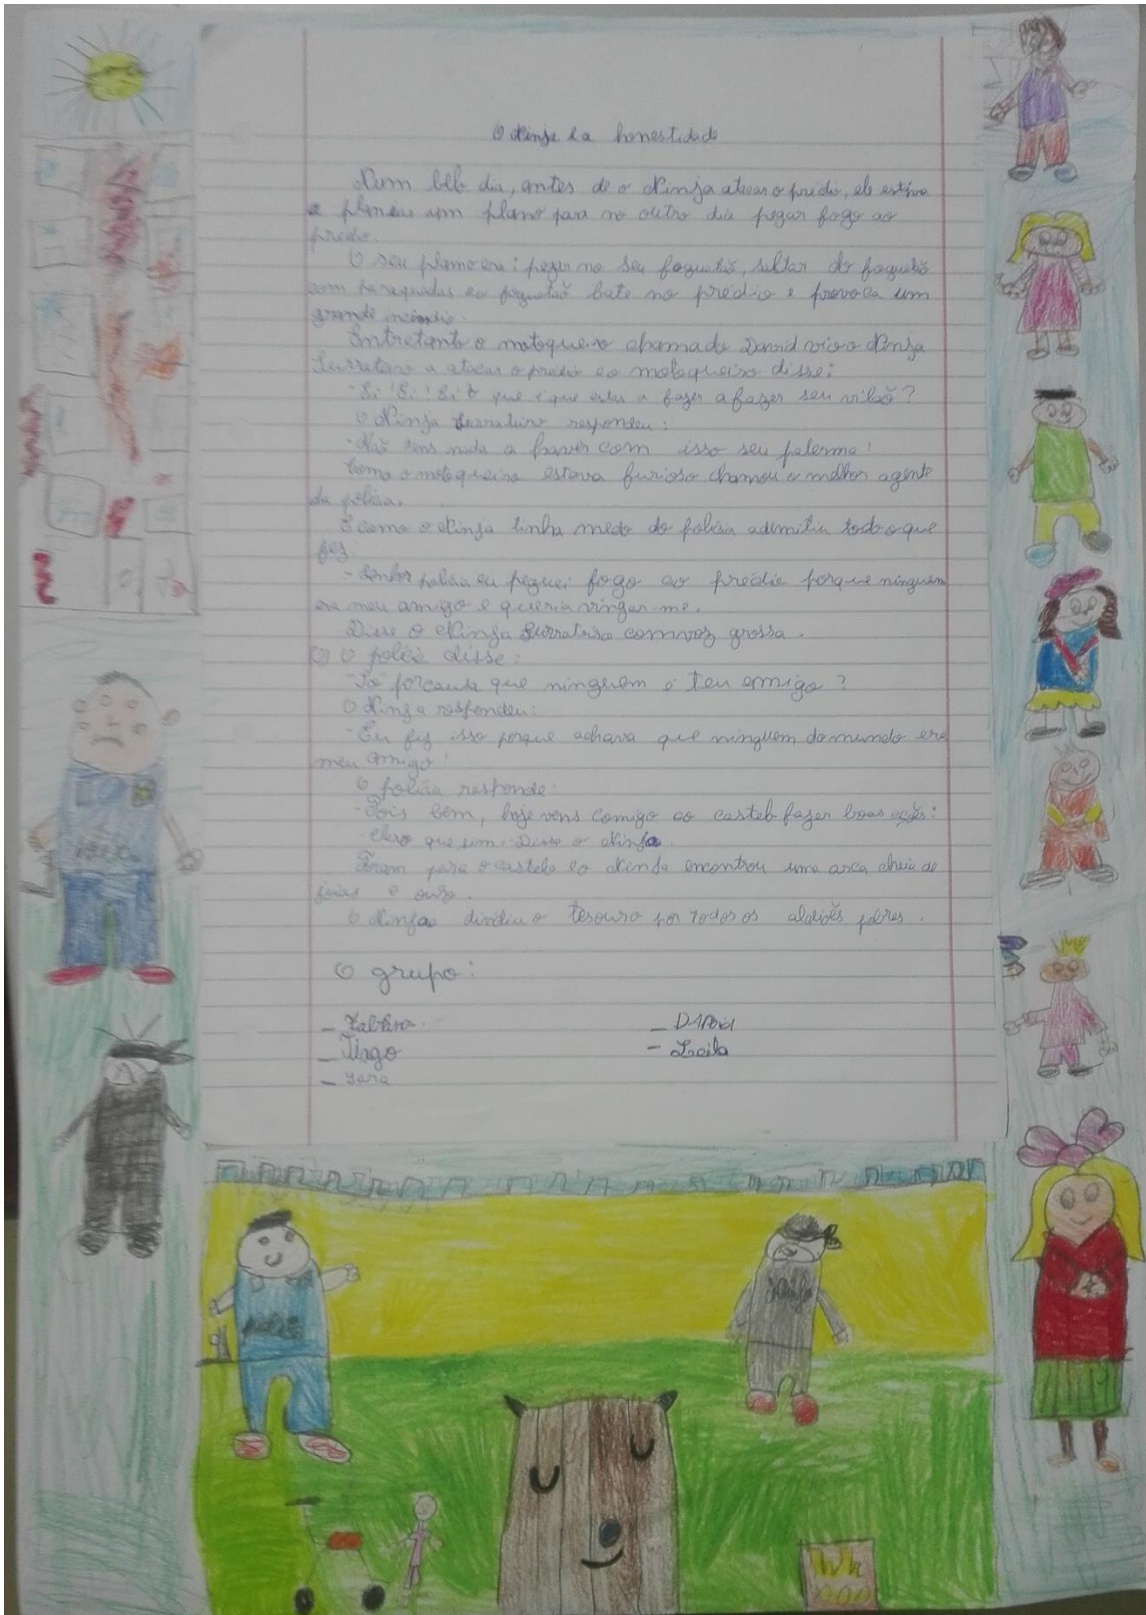 O Ninja e a honestidade
Num belo dia, antes de o Ninja atacar o prédio, ele estive
a planear um plano para no outro dia pegar fogo ao
prédio.
O seu plano era: pegar no seu foguetão, saltar do foguetão
com paraquedas e o foguetão bate no prédio e provoca um
grande incêndio.
Entretanto o motoqueiro chamado David viu o Ninja
Surrateiro a atacar o prédio e o motoqueiro disse:
-Ei! Ei! Ei! O que é que estas a fazer a fazer seu vilão?
O Ninja Surrateiro respondeu:
-Não tens nada a haver com isso seu palerma!
Como o motoqueiro estava furioso chamou o melhor agente
da polícia.
E como o Ninja tinha medo do polícia ademitiu tudo o que
fez.
-Senhor polícia eu peguei fogo ao prédio porque ninguém
era meu amigo e queria vingar-me.
Disse o Ninja Surrateiro com voz grossa.
O polícia disse:
-Tá por causa que ninguém é teu amigo?
O Ninja respondeu:
-Eu fiz isso porque achava que ninguém do mundo era
meu amigo!
O polícia responde:
-Pois bem, hoje vens comigo ao castelo fazer boas ações:
-Claro que sim. Disse o Ninja.
Foram para o castelo e o Ninja encontrou uma arca cheia de
joias e ouro.
O Ninja dividiu o tesouro por todos os aldiões pobres.
O grupo:
-
- Tiago
- Yara
-
- Leila